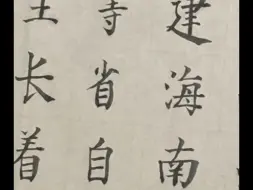 建海南
等省自
生长着